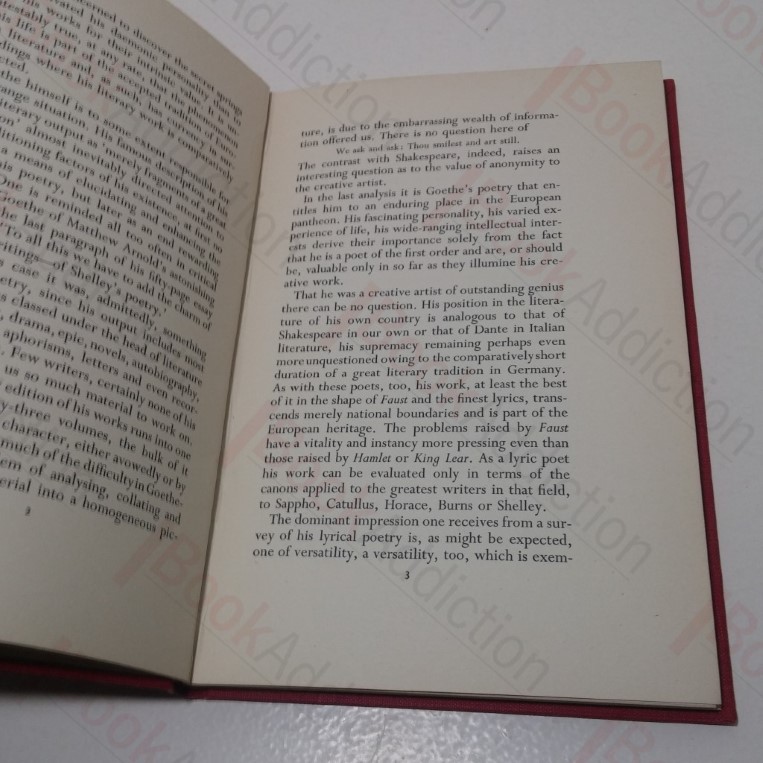 concerned to discover the secret springs
vated his daemonic personality than
his works for their intrinsic value. It is un-
testably true, at any rate, that the phenomenon
his life is part of the accepted tradition of Euro-
literature and, as such, has currency in sur-
dings where his literary work is comparatively
cted.
the himself is to some extent responsible for
range situation. His famous description of his
iterary output as 'merely fragments of a great
on' almost inevitably directed attention to
itioning factors of his existence, at first no
a means of elucidating and enhancing the
is poetry, but later as an end rewarding
One is reminded all too often in critical
Goethe of Matthew Arnold's astonishing
the last paragraph of his fifty-page essay
'To all this we have to add the charm of
itings—of Shelley's poetry.'
case it was, admittedly, something
etry, since his output includes most
s classed under the head of literature
, drama, epic, novels, autobiography,
aphorisms, letters and even recor-
. Few writers, certainly none of his
us so much material to work on.
edition of his works runs into one
y-three volumes, the bulk of it
character, either avowedly or by
much of the difficulty in Goethe-
em of analysing, collating and
erial into a homogeneous pic-
2
ture, is due to the embarrassing wealth of informa-
tion offered us. There is no question here of
We ask and ask: Thou smilest and art still.
The contrast with Shakespeare, indeed, raises an
interesting question as to the value of anonymity to
the creative artist.
In the last analysis it is Goethe's poetry that en-
titles him to an enduring place in the European
pantheon. His fascinating personality, his varied ex-
perience of life, his wide-ranging intellectual inter-
ests derive their importance solely from the fact
that he is a poet of the first order and are, or should
be, valuable only in so far as they illumine his cre-
ative work.
That he was a creative artist of outstanding genius
there can be no question. His position in the litera-
ture of his own country is analogous to that of
Shakespeare in our own or that of Dante in Italian
literature, his supremacy remaining perhaps even
more unquestioned owing to the comparatively short
duration of a great literary tradition in Germany.
As with these poets, too, his work, at least the best
of it in the shape of Faust and the finest lyrics, trans-
cends merely national boundaries and is part of the
European heritage. The problems raised by Faust
have a vitality and instancy more pressing even than
those raised by Hamlet or King Lear. As a lyric poet
his work can be evaluated only in terms of the
canons applied to the greatest writers in that field,
to Sappho, Catullus, Horace, Burns or Shelley.
The dominant impression one receives from a sur-
vey of his lyrical poetry is, as might be expected,
one of versatility, a versatility, too, which is exem-
3
BookAddiction